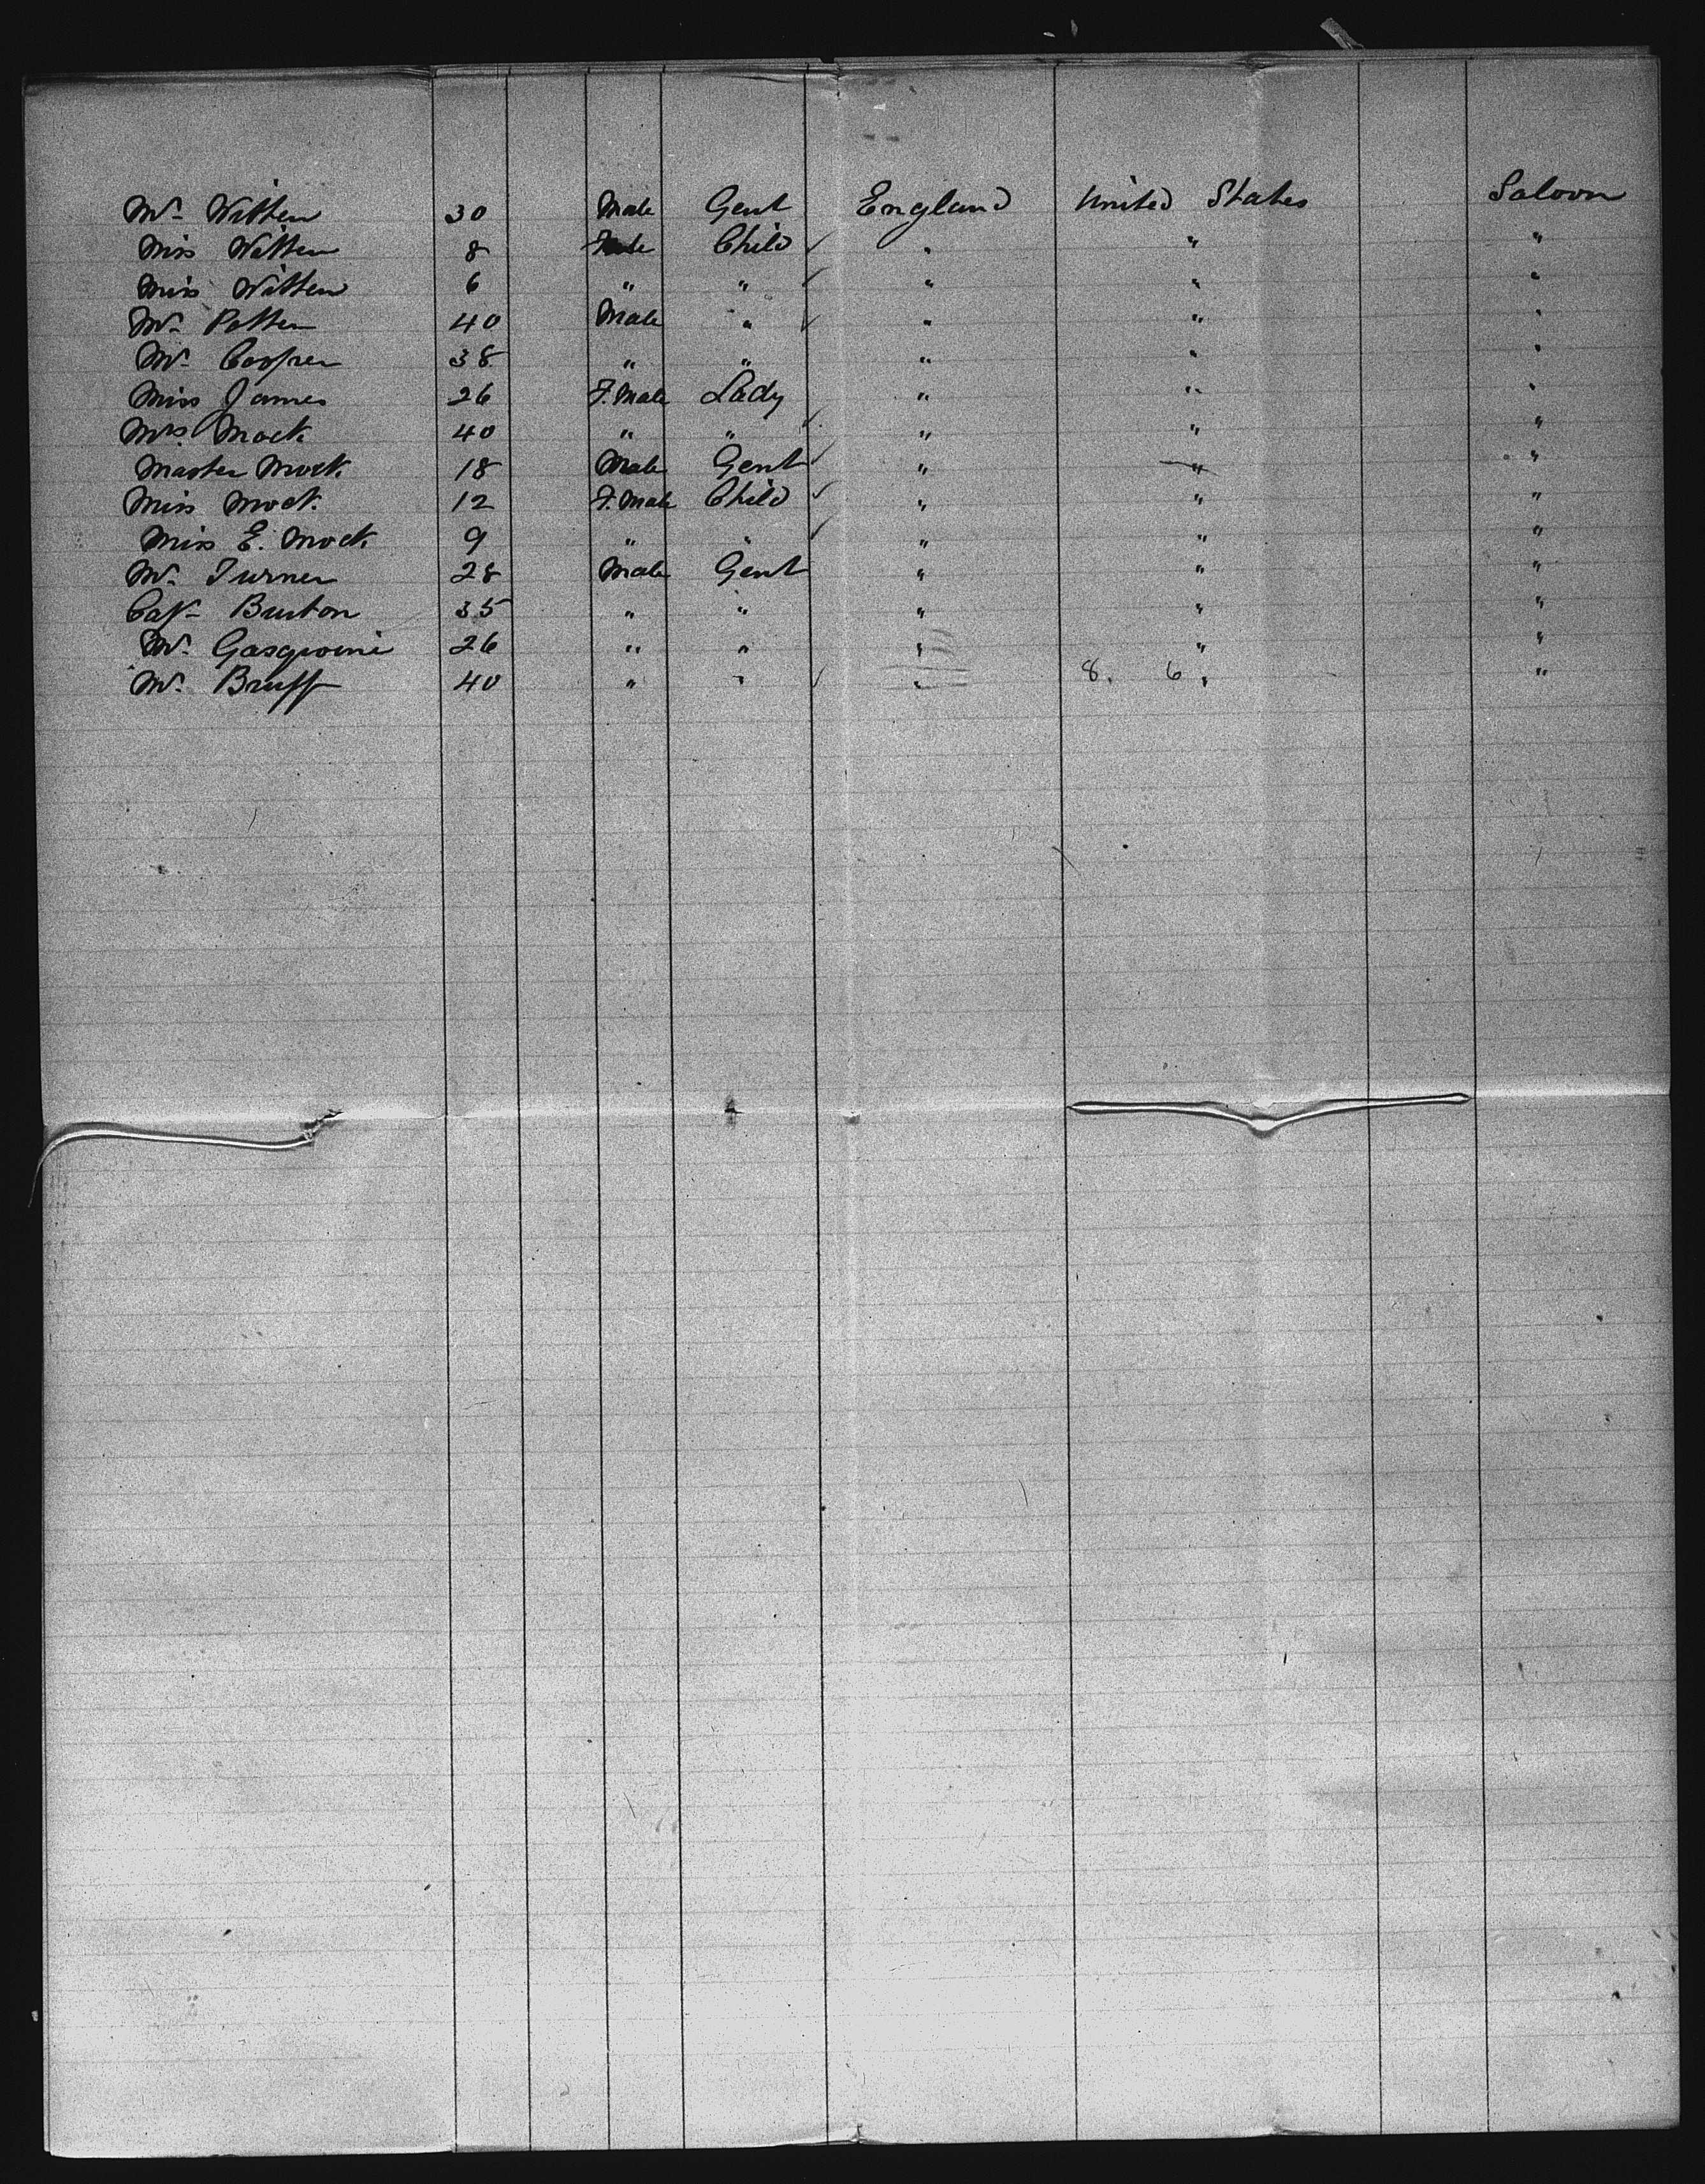 Mr. Witten 30 Male Gent England United States Saloon
Miss Witten 8 Child ✓ " " "
Miss Witten 6 " " ✓ " " "
Mr. Potter 40 Male " ✓ " " "
Mr. Cooper 38 " " " " "
Miss James 26 F. Male Lady " " "
Mrs Mock 40 " " ✓ " " "
Master Mock 18 Male Gent ✓ " " "
Miss Mock 12 F. Male Child ✓ " " "
Miss E. Mock 9 " " ✓ " " "
Mr. Turner 28 Male Gent " " "
Cap- Burton 35 " " " " "
Mr. Gasquoine 26 " " " " "
Mr. Bruff 40 " " ✓ " 8. 6 " "